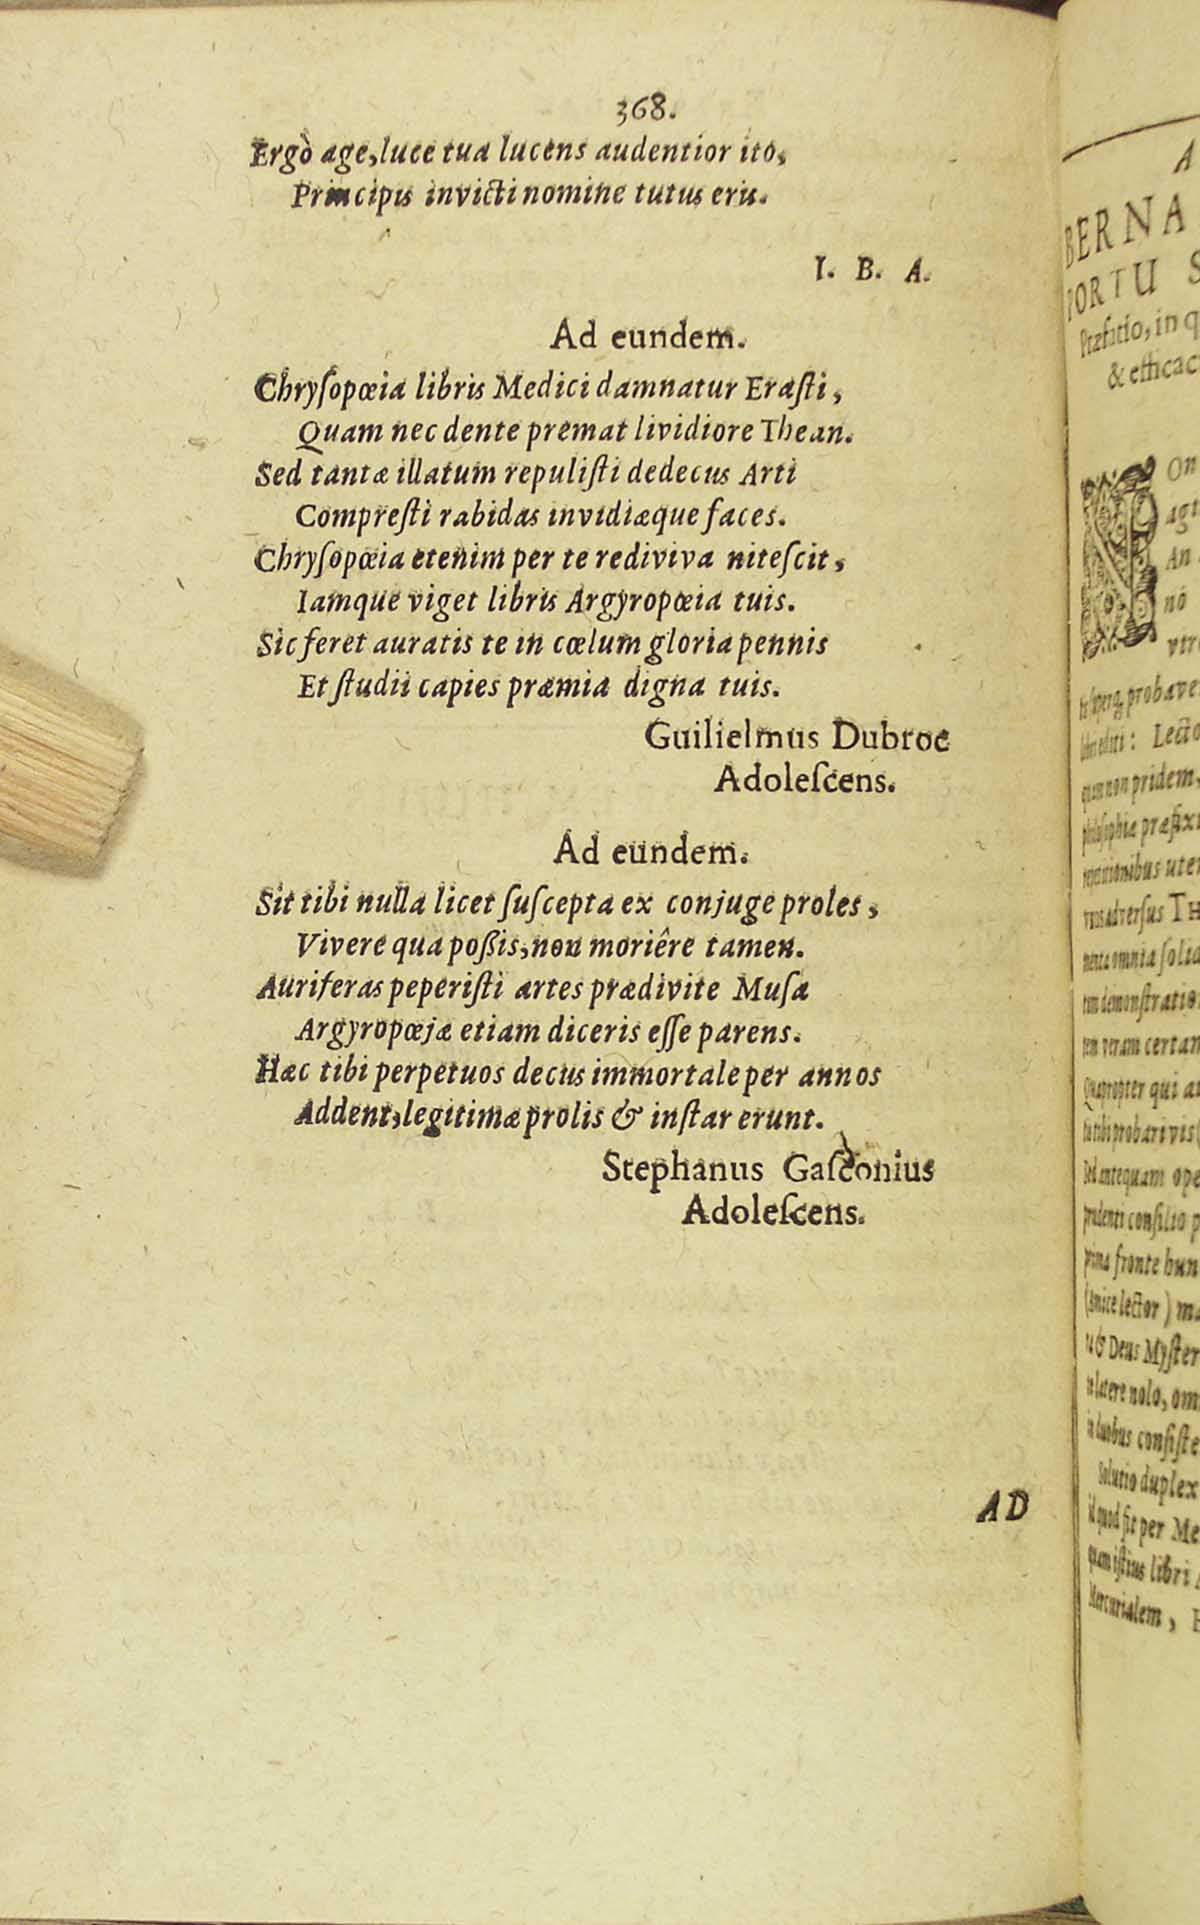 368.
Ergò age, luce tua lucens audentior ito,
Principis invicti nomine tutus eris.
I. B. A.
Ad eundem.
Chryſopœia libris Medici damnatur Eraſti,
Quam nec dente premat lividiore Thean.
Sed tantæ illatum repuliſti dedecus Arti
Compreſti rabidas invidiæque faces.
Chryſopœia etenim per te rediviva niteſcit,
Iamque viget libris Argyropœia tuis.
Sic feret auratis te in cœlum gloria pennis
Et ſtudii capies præmia digna tuis.
Guilielmus Dubroc
Adoleſcens.
Ad eundem.
Sit tibi nulla licet ſuſcepta ex conjuge proles,
Vivere qua poßis, non moriêre tamen.
Auriferas peperiſti artes prædivite Muſa
Argyropœjæ etiam diceris eſſe parens.
Hæc tibi perpetuos decus immortale per annos
Addent, legitimæ prolis & inſtar erunt.
Stephanus Gaſconius
Adoleſcens.
AD
A
BERNA
PORTU S
Præfatio, in q
& efficac
On
agi
An
nô
probave
libri editi: Lecto
quam non pridem,
philoſophiæ præfixi
repetitionibus uter
adverſus TH
omnia ſolid
demonſtratio
tem veram certan
Quapropter qui
tibi probari vis
Sed antequam ope
prudenti conſilio p
prima fronte hun
(amice lector) ma
& Deus Myſter
latere nolo, om
in duobus conſiſte
Solutio duplex
id quod fit per Me
quam iſtius libri
Mercurialem, H